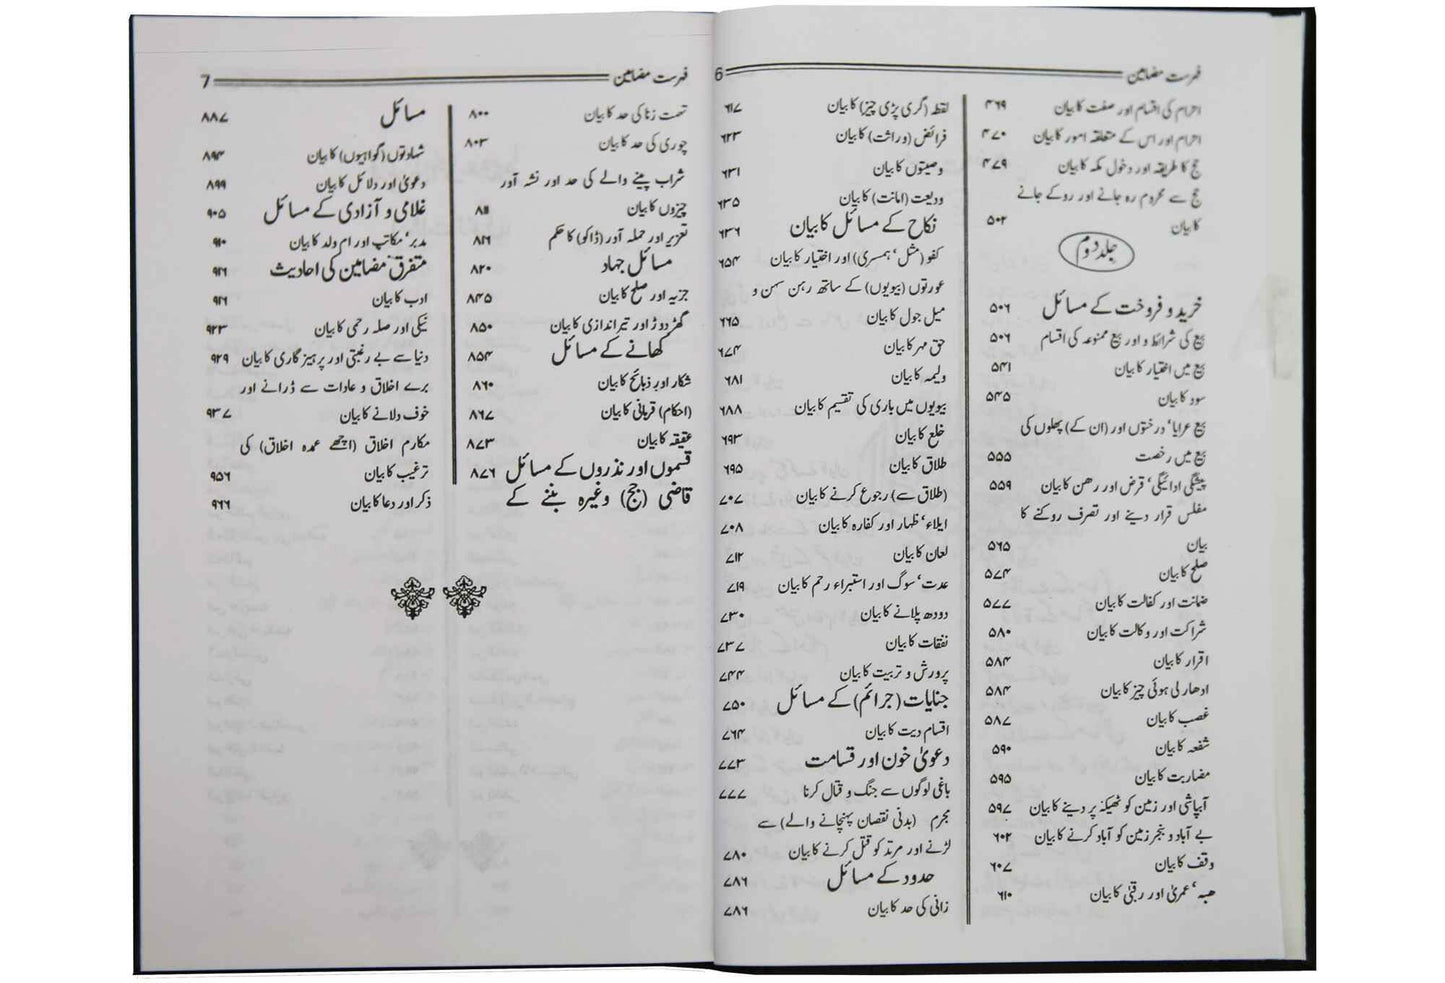 فہرست مضامین 6
احرام کی اقسام اور صفت کا بیان ۴۶۹
احرام اور اس کے متعلقہ امور کا بیان ۴۷۰
حج کا طریقہ اور دخول مکہ کا بیان ۴۷۹
حج سے محروم رہ جانے اور روکے جانے
کا بیان ۵۰۲
جلد دوم
خرید و فروخت کے مسائل ۵۰۶
بیع کی شرائط و اور بیع ممنوعہ کی اقسام ۵۰۶
بیع میں اختیار کا بیان ۵۴۱
سود کا بیان ۵۴۵
بیع عرایا‘ درختوں اور (ان کے) پھلوں کی
بیع میں رخصت ۵۵۵
پیشگی ادائیگی‘ قرض اور رھن کا بیان ۵۵۹
مفلس قرار دینے اور تصرف روکنے کا
بیان ۵۶۵
صلح کا بیان ۵۷۴
ضمانت اور کفالت کا بیان ۵۷۷
شراکت اور وکالت کا بیان ۵۸۰
اقرار کا بیان ۵۸۴
ادھار لی ہوئی چیز کا بیان ۵۸۴
غصب کا بیان ۵۸۷
شفعہ کا بیان ۵۹۰
مضاربت کا بیان ۵۹۵
آبپاشی اور زمین کو ٹھیکہ پر دینے کا بیان ۵۹۷
بے آباد و بنجر زمین کو آباد کرنے کا بیان ۶۰۲
وقف کا بیان ۶۰۷
ھبہ‘ عمریٰ اور رقبیٰ کا بیان ۶۱۰
لقطہ (گری پڑی چیز) کا بیان ۶۱۷
فرائض (وراثت) کا بیان ۶۲۳
وصیتوں کا بیان ۶۳۱
ودیعت (امانت) کا بیان ۶۳۵
نکاح کے مسائل کا بیان ۶۳۶
کفو (مثل‘ ہمسری) اور اختیار کا بیان ۶۵۴
عورتوں (بیویوں) کے ساتھ رہن سہن و
میل جول کا بیان ۶۶۵
حق مہر کا بیان ۶۷۴
ولیمہ کا بیان ۶۸۱
بیویوں میں باری کی تقسیم کا بیان ۶۸۸
خلع کا بیان ۶۹۳
طلاق کا بیان ۶۹۵
(طلاق سے) رجوع کرنے کا بیان ۷۰۷
ایلاء‘ ظہار اور کفارہ کا بیان ۷۰۸
لعان کا بیان ۷۱۲
عدت‘ سوگ اور استبراء رحم کا بیان ۷۱۹
دودھ پلانے کا بیان ۷۳۰
نفقات کا بیان ۷۳۷
پرورش و تربیت کا بیان ۷۴۴
جنایات (جرائم) کے مسائل ۷۵۰
اقسام دیت کا بیان ۷۶۴
دعویٰ خون اور قسامت ۷۷۳
باغی لوگوں سے جنگ و قتال کرنا ۷۷۷
مجرم (بدنی نقصان پہنچانے والے) سے
لڑنے اور مرتد کو قتل کرنے کا بیان ۷۸۰
حدود کے مسائل ۷۸۶
زانی کی حد کا بیان ۷۸۶
فہرست مضامین 7
تہمت زنا کی حد کا بیان ۸۰۰
چوری کی حد کا بیان ۸۰۳
شراب پینے والے کی حد اور نشہ آور
چیزوں کا بیان ۸۱۱
تعزیر اور حملہ آور (ڈاکو) کا حکم ۸۱۶
مسائل جہاد ۸۲۰
جزیہ اور صلح کا بیان ۸۴۵
گھڑ دوڑ اور تیر اندازی کا بیان ۸۵۰
کھانے کے مسائل ۸۵۴
شکار اور ذبائح کا بیان ۸۶۰
(احکام) قربانی کا بیان ۸۶۷
عقیقہ کا بیان ۸۷۳
قسموں اور نذروں کے مسائل ۸۷۶
قاضی (جج) وغیرہ بننے کے
مسائل ۸۸۷
شہادتوں (گواہیوں) کا بیان ۸۹۴
دعویٰ اور دلائل کا بیان ۸۹۹
غلامی و آزادی کے مسائل ۹۰۵
مدبر‘ مکاتب اور ام ولد کا بیان ۹۱۰
متفرق مضامین کی احادیث ۹۱۶
ادب کا بیان ۹۱۶
نیکی اور صلہ رحمی کا بیان ۹۲۳
دنیا سے بے رغبتی اور پرہیز گاری کا بیان ۹۲۹
برے اخلاق و عادات سے ڈرانے اور
خوف دلانے کا بیان ۹۳۷
مکارم اخلاق (اچھے عمدہ اخلاق) کی
ترغیب کا بیان ۹۵۶
ذکر اور دعا کا بیان ۹۶۶